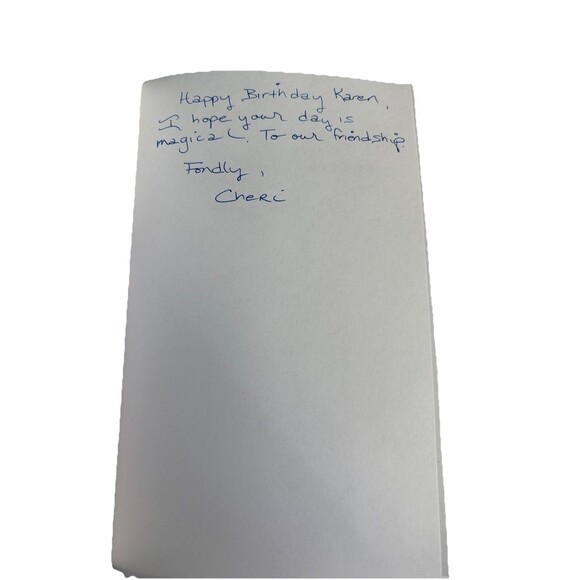 Happy Birthday Karen,
I hope your day is
magical. To our friendship
Fondly,
Cheri